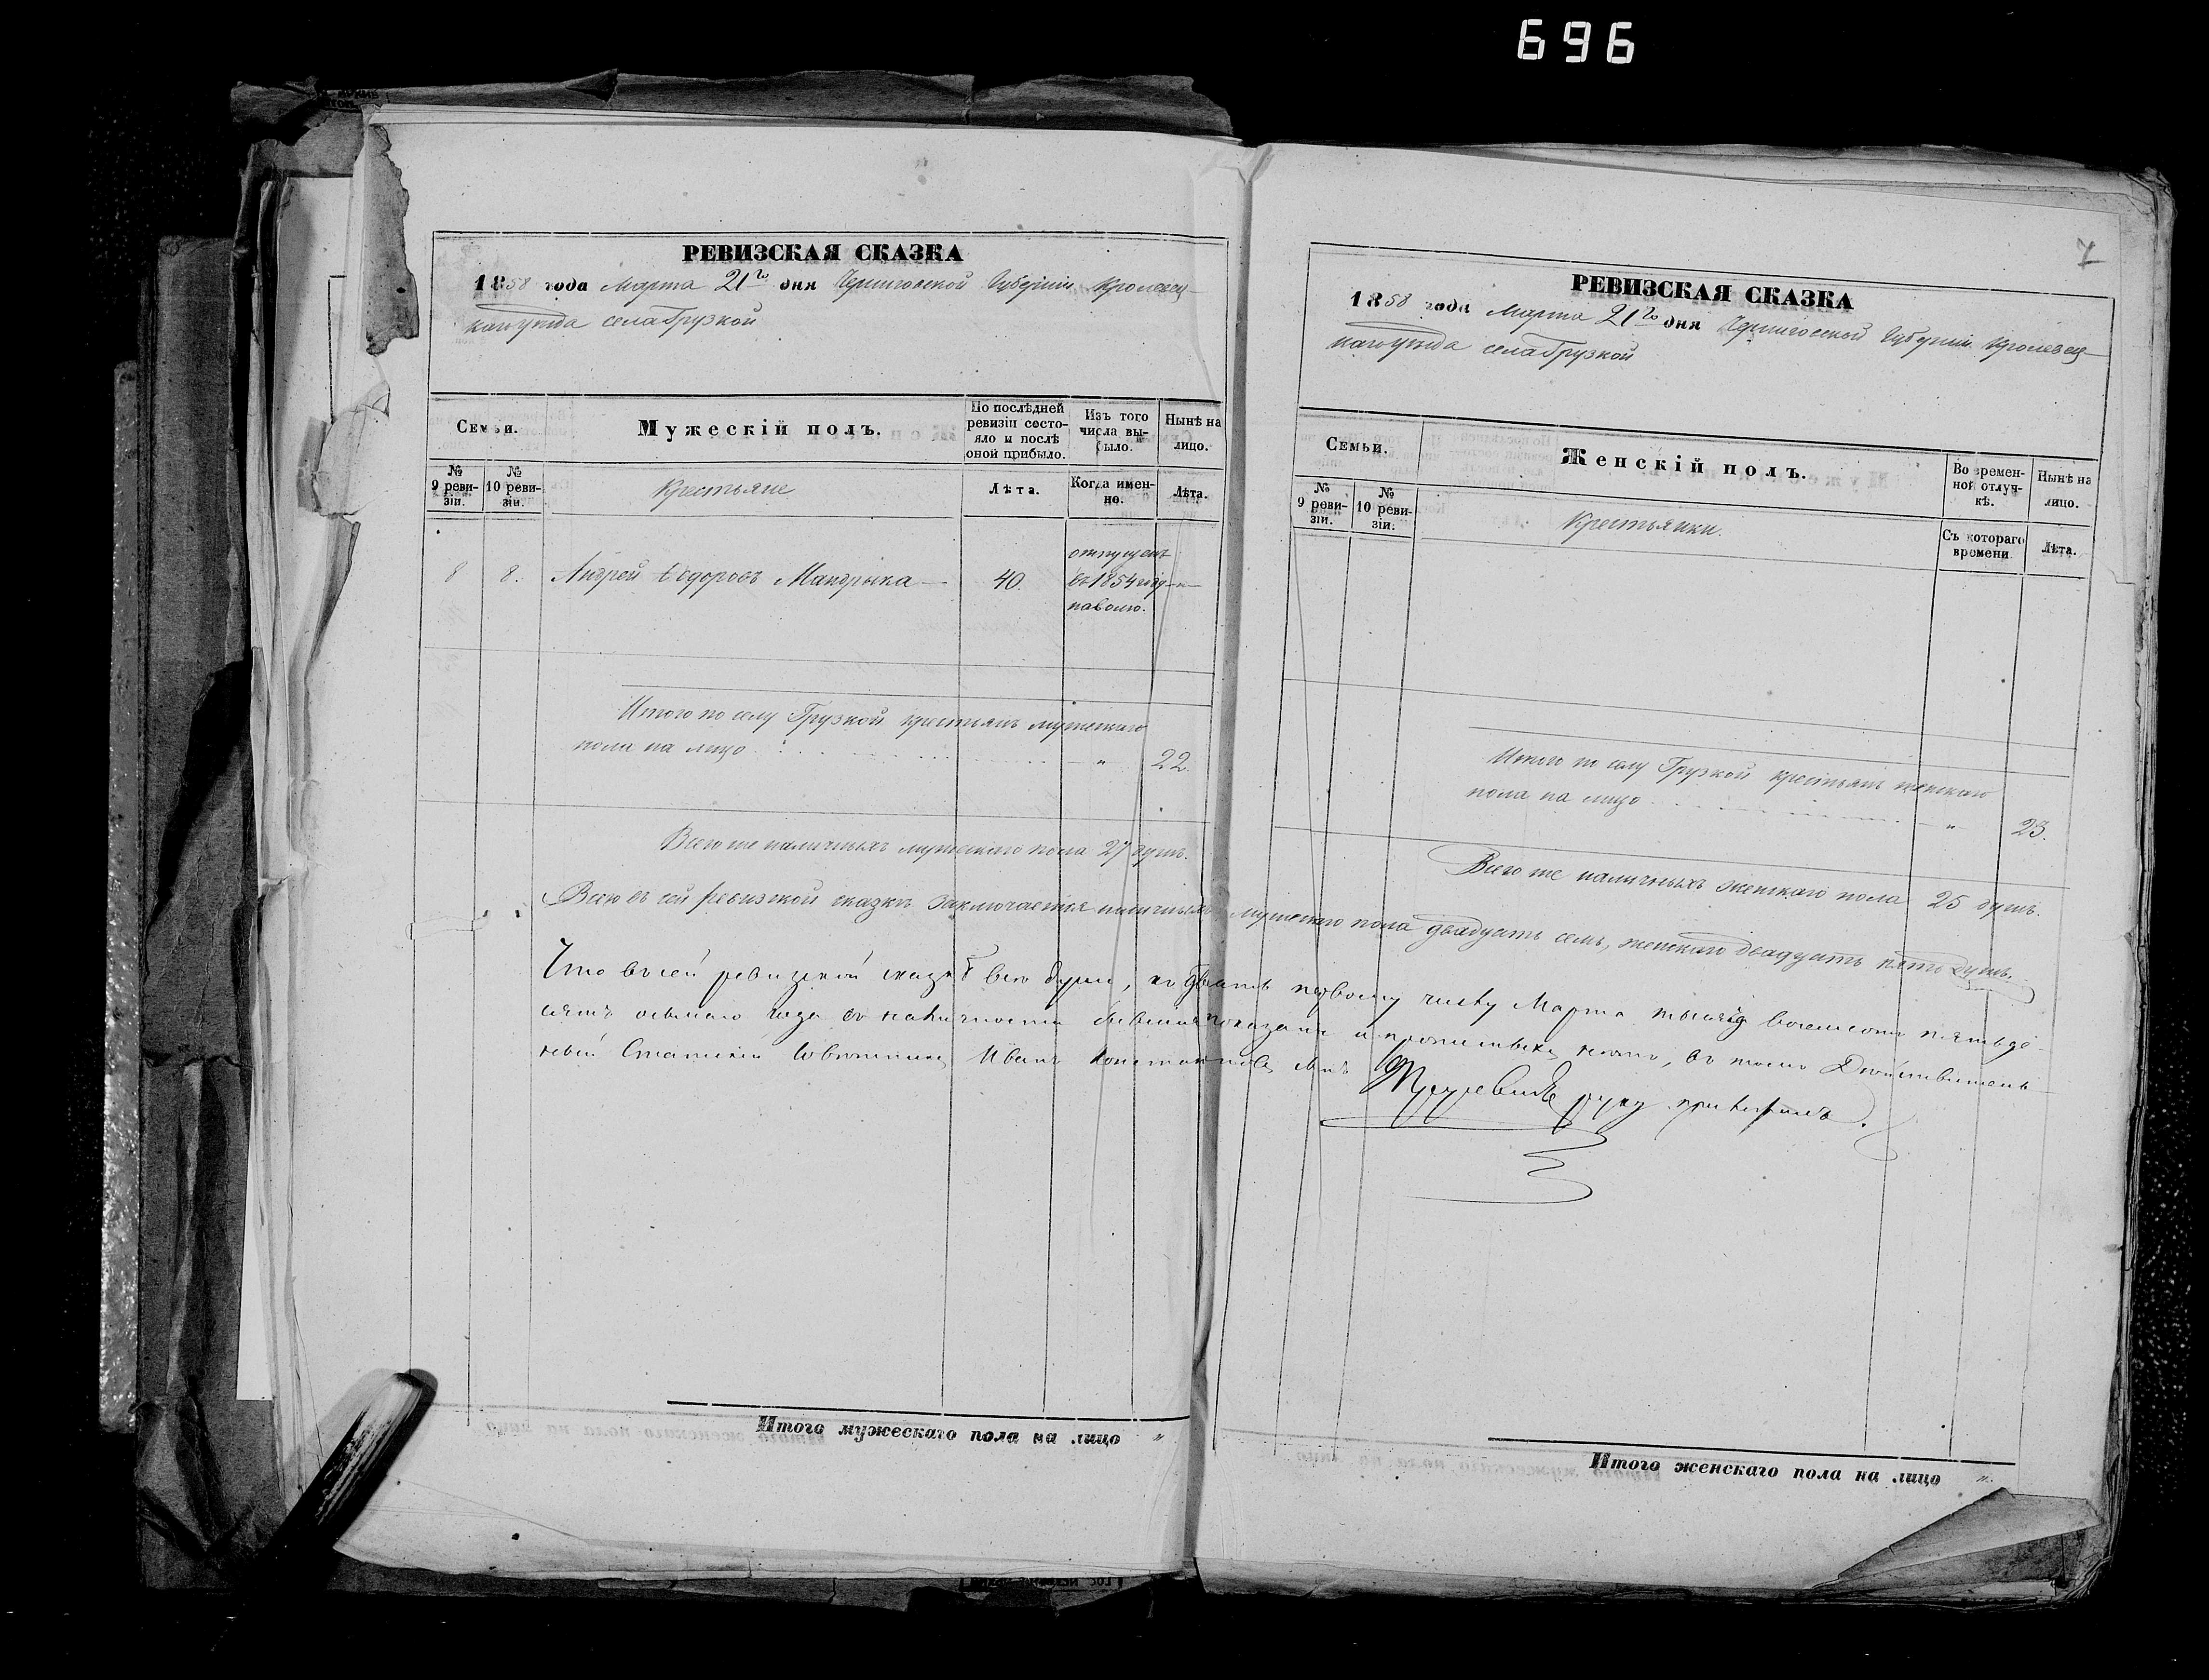 696
РЕВИЗСКАЯ СКАЗКА
1858 года Марта 21го дня Черниговской Губерніи Кролевец-
каго уѣзда села Грузкой
Семьи.
Мужескій полъ.
По послѣдней ревизіи состо-
яло и послѣ оной прибыло.
Изъ того числа вы-
было.
Нынѣ на лицо.
№ 9 реви-
зіи.
№ 10 реви-
зіи.
Крестьяне
Лѣта.
Когда имен-
но.
Лѣта.
8 8. Андрей Ѳедоровъ Мандрыка — 40. отпущенъ
въ 1854 году
на волю.
Итого по селу Грузкой крестьянъ мужескаго
пола на лицо " 22.
Всего же наличныхъ мужескаго пола 27 душъ.
Итого мужескаго пола на лицо "
7
РЕВИЗСКАЯ СКАЗКА
1858 года Марта 21го дня Черниговской Губерніи Кролевец-
каго уѣзда села Грузкой
Семьи.
Женскій полъ.
Во времен-
ной отлуч-
кѣ.
Нынѣ на лицо.
№ 9 реви-
зіи.
№ 10 реви-
зіи.
Крестьянки.
Съ котораго времени
Лѣта.
Итого по селу Грузкой крестьянъ женскаго
пола на лицо " 23.
Всего же наличныхъ женскаго пола 25 душъ.
Всего въ сей ревизской сказкѣ заключается наличныхъ мужескаго пола двадцать семь, женскаго двадцать пять душъ.
Что в сей ревизской сказкѣ все души, къ первому числу Марта тысяча восемсотъ пятьде-
сятъ осьмаго года въ наличности показаны и нѣтъ, въ томъ Дѣйствитель-
ный Статскій Совѣтникъ Иванъ Константиновъ сынъ
руку приложилъ.
Итого женскаго пола на лицо "